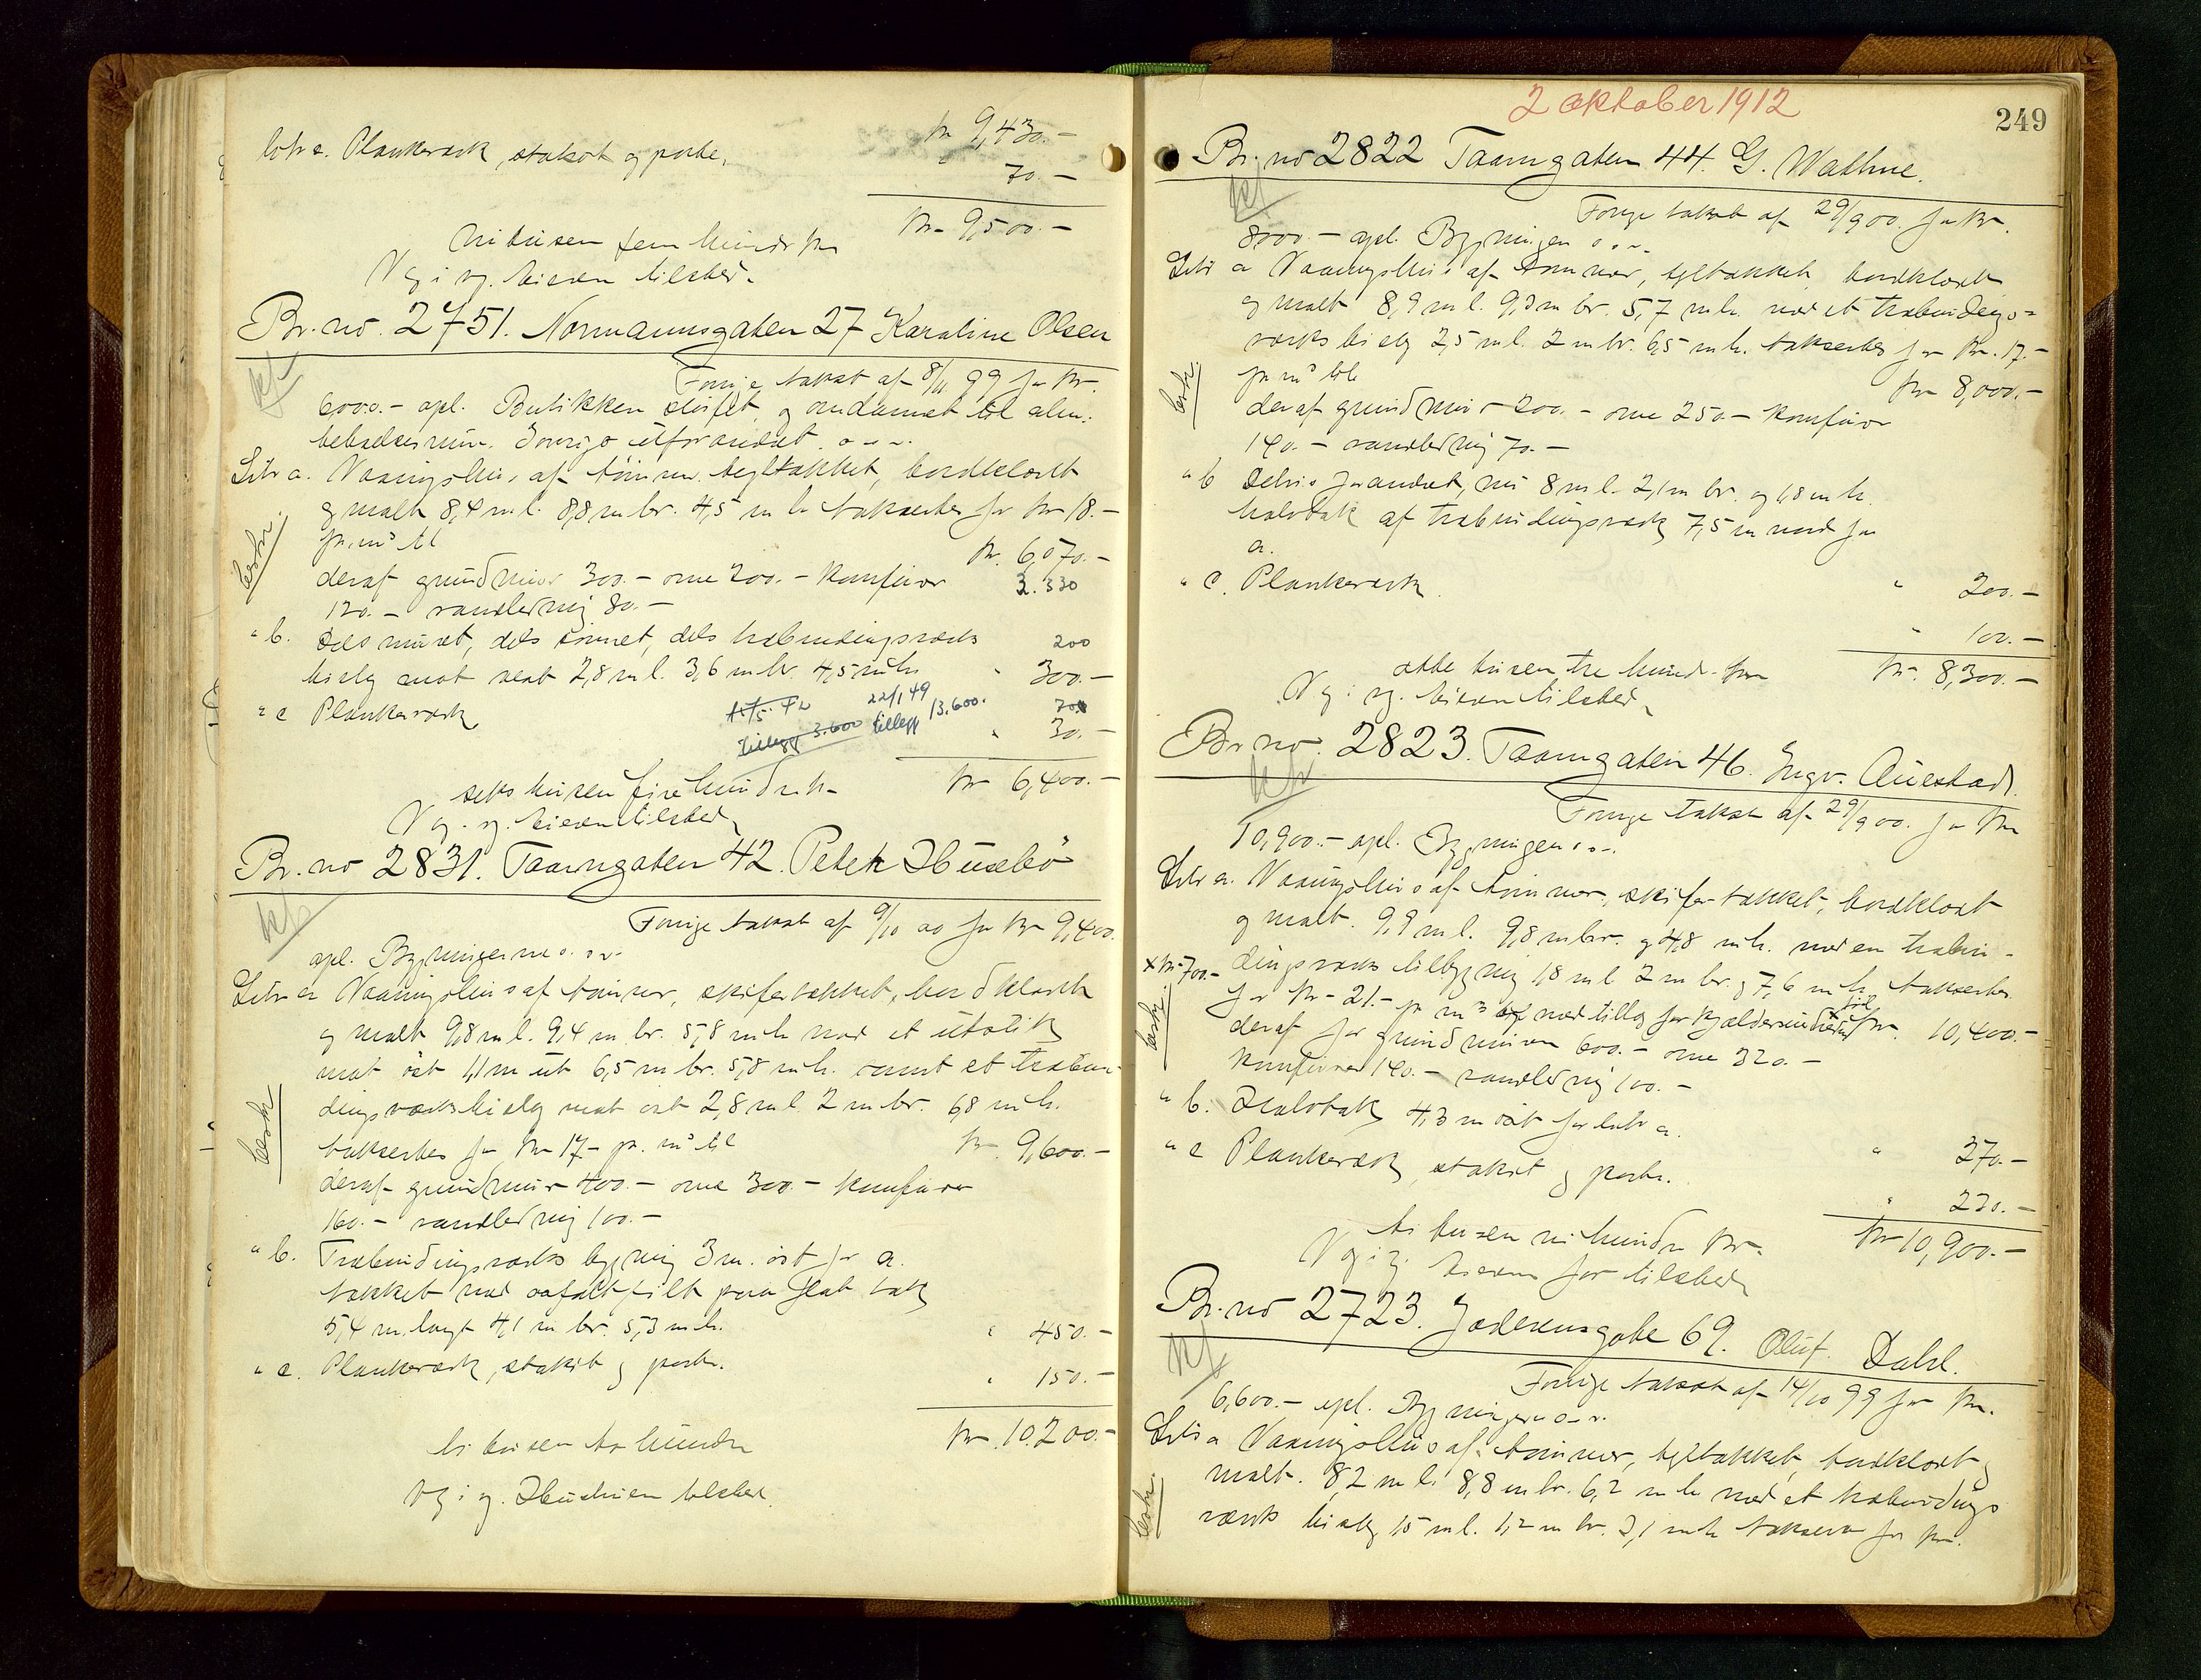 kr 9,430.-
Litr c. Plankeværk, stakit og porte.
" 70.-
kr 9,500.-
nitusen fem hundr kr
V g i sg. Eieren tilsted.
Br. no. 2751. Normannsgaten 27 Karaline Olsen
kf
Forrige takst af 8/11 99 for kr.
6000.- opl. Butikken sløifet og omdannet til alm.
beboelsesrum. Iøvrigt uforandret
Litr a. Vaaningshus af tømmer, tegltækket, bordklædt
og malt 8,4 m l. 8,8 m br. 4,5 m h takseertes for kr 18.-
pr. m³ til
kr. 6,070.-
deraf grundmur 300.- ovne 200.- komfurer
3.330
120.- vandledning 80.-
" b. Dels muret, dels tømret, dels træbindingsværks
200
bislag mot vest 2,8 m l. 3,6 m br. 4,5 m h.
" 300.-
22/1 49
" c Plankeværk
Tillegg 3.600 tillegg 13.600.
" 30.-
kr 6,400.-
seks tusen fire hundr kr
V g. sg. Eieren tilsted
Br. no 2831. Taarngaten 42. Peter Husebö
kf
Forrige takst af 9/10 00 for kr 9,400.
opl. Bygningerne s. s.
Litr a Vaaningshus af tømmer, skifertækket, bordklædt
og malt 9,8 m l. 9,4 m br. 5,8 m h med et utstik
mot øst 1,1 m ut 6,5 m br. 5,8 m h. samt et træbin-
dingsværksbislag mot øst 2,8 m l. 2 m br. 6,8 m h.
takseertes for kr 17.- pr. m³ til
kr. 9,600.-
deraf grundmur 400.- ovne 300.- komfurer
160.- vandledning 100.-
" b. Træbindingsværks bygning 3 m. øst for a.
tækket med asfaltfilt paa flat tak
5,4 m. langt 4,1 m br. 5,3 m h.
" 450.-
" c. Plankeværk, stakit og porte.
" 150.-
kr. 10.200.-
ti tusen to hundre
V g i g. Husebøen tilsted
2 oktober 1912
249
Br. no 2822 Taarngaten 44. G. Wathne.
kf
Forrige takst af 29/9 00. for kr.
8000.- opl. Bygningen s. s.
Litr a Vaaningshus af tømmer, tegltækket, bordklædt
og malt 8,9 m l. 9,3 m br. 5,7 m h. med et træbindings-
værks bislag 2,5 m l. 2 m br. 6,5 m h. takseertes for kr. 17.-
pr m³ til
kr 8,000.-
deraf grundmur 200.- ovne 250.- komfurer
140.- vandledning 70.-
" b Delvis forandret, nu 8 m l. 2,1 m br. og 1,8 m h.
halvtak af træbindingsværk 7,5 m nord for
a.
" 200.-
" c. Plankeværk
" 100.-
kr. 8,300.-
otte tusen tre hundr. kr
V g i sg. Eieren tilsted
Br. no. 2823. Taarngaten 46. Ingv. Auestad.
kf
Forrige takst af 29/9 00. for kr
10,900.- opl. Bygningen s. s.
Litr a. Vaaningshus af tømmer, skifertækket, bordklædt
og malt. 9,9 m l. 9,8 m br. og 4,8 m h. med en træbin-
dingsværks tilbygning 1,8 m l 2 m br. og 7,6 m h. takseertes
x kr 700.-
for kr 21.- pr m³ med tillæg for kjælderindredn. kr. 10,400.-
deraf for grundmuren 600.- ovne 320.-
komfurer 140.- vandledning 100.-
" b. Halvtak 4,3 m øst for litr a.
" 270.-
" c Plankeværk, stakit og porte.
" 230.-
kr 10,900.-
ti tusen ni hundre kr.
V g i g. Eierens far tilsted
Br. no 2723. Jæderensgate 69. Oluf. Dahl.
kf
Forrige takst af 14/10 99 for kr.
6,600.- opl. Bygningen s. s.
Litr a Vaaningshus af tømmer, tegltækket, bordklædt og
malt. 8,2 m l. 8,8 m br. 6,2 m h med et træbindings
værks bislag 1,5 m l. 1,2 m br. 2,1 m h takseeres for kr.